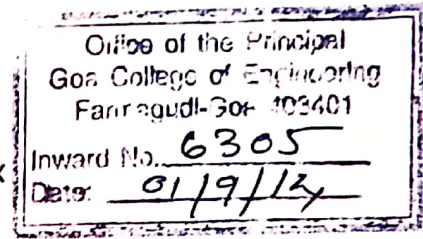 Office of the Principal
Goa College of Engineering
Farmagudi-Goa 403401
Inward No. 6305
Date: 01/9/12